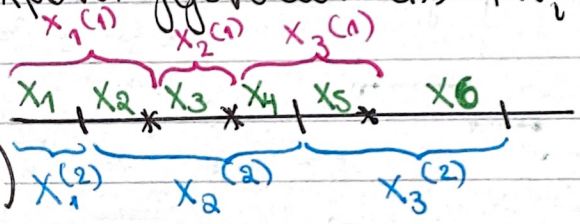 X₁⁽¹⁾ X₂⁽¹⁾ X₃⁽¹⁾
X₁ X₂ X₃ X₄ X₅ X₆
X₁⁽²⁾ X₂⁽²⁾ X₃⁽²⁾